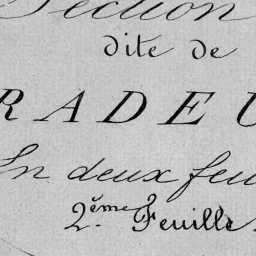 Section
dite de
RADEU
En deux feu
2.ème Feuille.